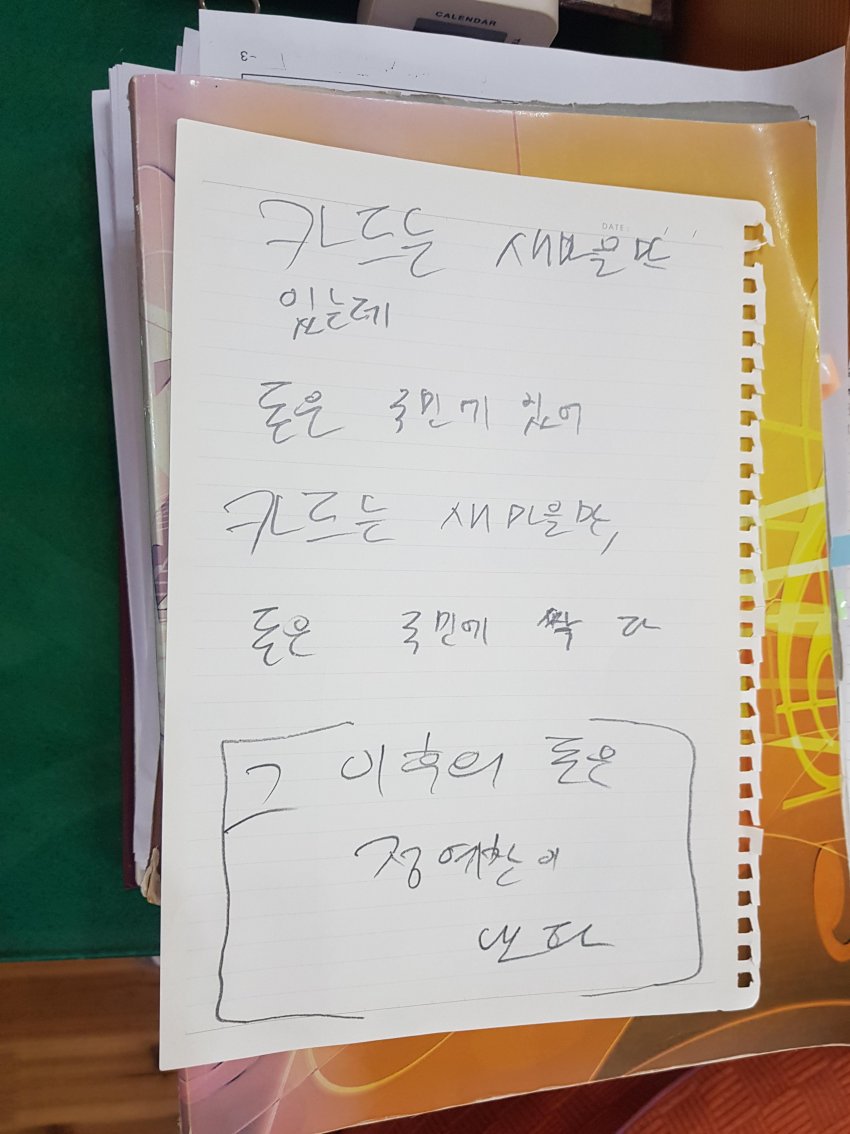 CALENDAR
-3
DATE : / /
카드는 새마을만
있는데
돈은 국민에 있어
카드는 새마을만,
돈은 국민에 싹 다
그 이후의 돈은
정예찬이
낸다